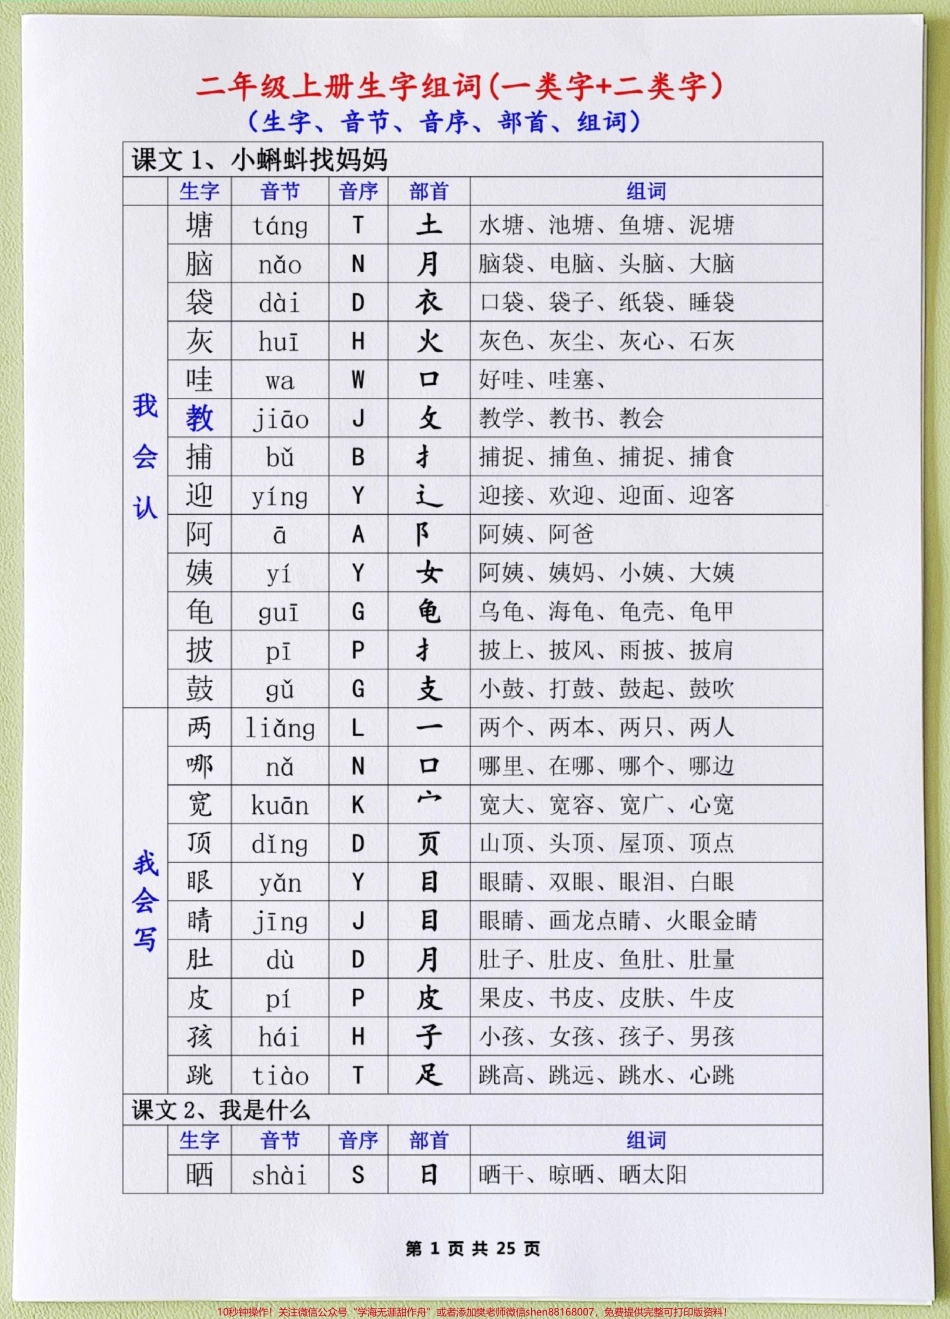 二年级上册生字组词(一类字+二类字)
（生字、音节、音序、部首、组词）
课文1、小蝌蚪找妈妈
生字 音节 音序 部首 组词
我会认
塘 táng T 土 水塘、池塘、鱼塘、泥塘
脑 nǎo N 月 脑袋、电脑、头脑、大脑
袋 dài D 衣 口袋、袋子、纸袋、睡袋
灰 huī H 火 灰色、灰尘、灰心、石灰
哇 wa W 口 好哇、哇塞、
教 jiāo J 攵 教学、教书、教会
捕 bǔ B 扌 捕捉、捕鱼、捕捉、捕食
迎 yíng Y 辶 迎接、欢迎、迎面、迎客
阿 ā A 阝 阿姨、阿爸
姨 yí Y 女 阿姨、姨妈、小姨、大姨
龟 guī G 龟 乌龟、海龟、龟壳、龟甲
披 pī P 扌 披上、披风、雨披、披肩
鼓 gǔ G 支 小鼓、打鼓、鼓起、鼓吹
我会写
两 liǎng L 一 两个、两本、两只、两人
哪 nǎ N 口 哪里、在哪、哪个、哪边
宽 kuān K 宀 宽大、宽容、宽广、心宽
顶 dǐng D 页 山顶、头顶、屋顶、顶点
眼 yǎn Y 目 眼睛、双眼、眼泪、白眼
睛 jīng J 目 眼睛、画龙点睛、火眼金睛
肚 dù D 月 肚子、肚皮、鱼肚、肚量
皮 pí P 皮 果皮、书皮、皮肤、牛皮
孩 hái H 子 小孩、女孩、孩子、男孩
跳 tiào T 足 跳高、跳远、跳水、心跳
课文2、我是什么
生字 音节 音序 部首 组词
晒 shài S 日 晒干、晾晒、晒太阳
第 1 页 共 25 页
10秒钟操作！关注微信公众号“学海无涯甜作舟”或者添加樊老师微信shen88168007，免费提供完整可打印版资料！